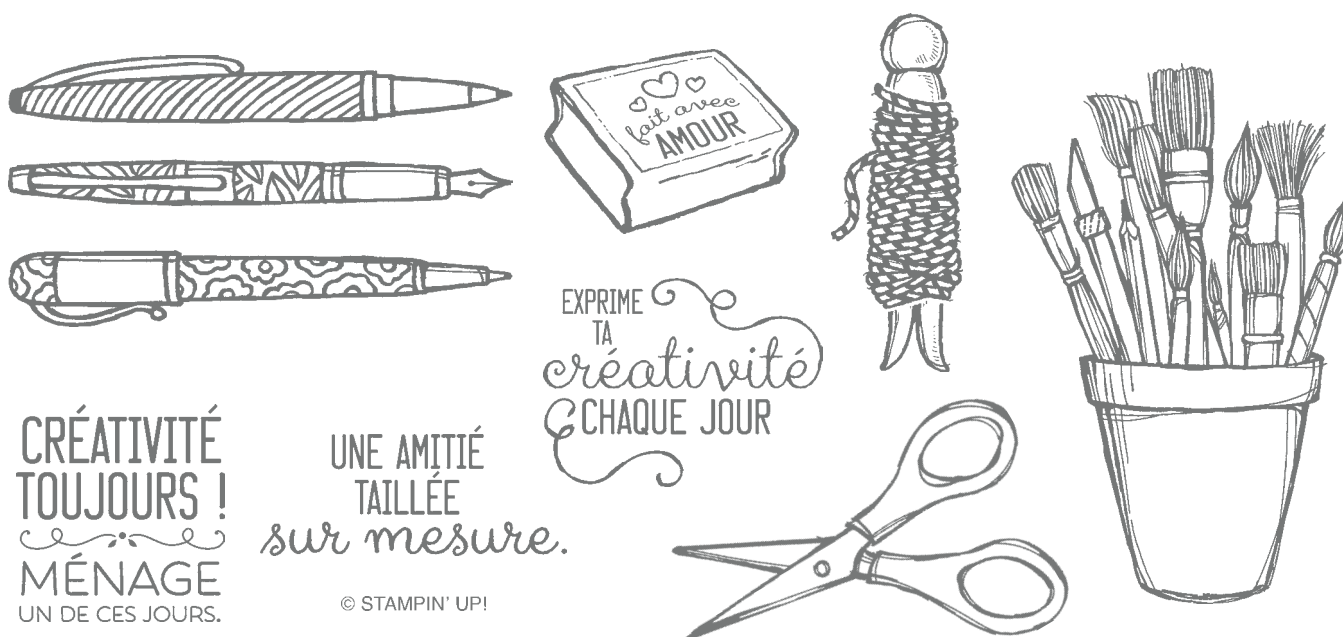 fait avec
AMOUR
EXPRIME
TA
créativité
CHAQUE JOUR
CRÉATIVITÉ
TOUJOURS !
MÉNAGE
UN DE CES JOURS.
UNE AMITIÉ
TAILLÉE
sur mesure.
© STAMPIN' UP!